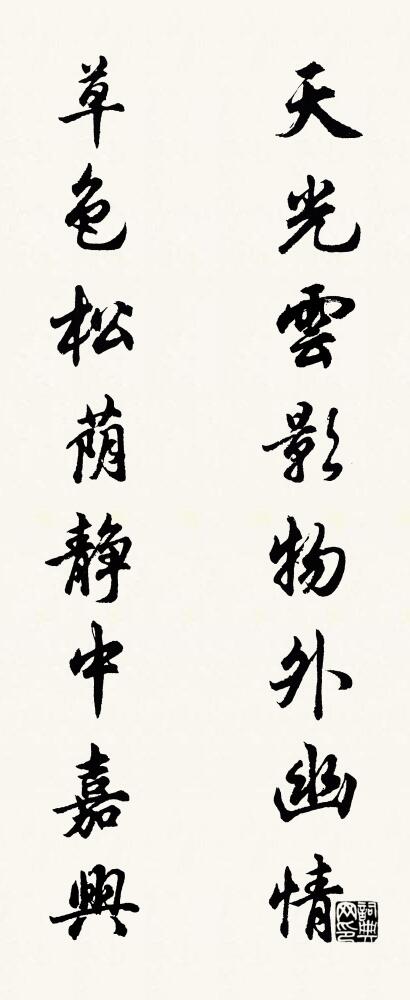 天光雲影物外幽情
草色松荫静中嘉興
詞典網印